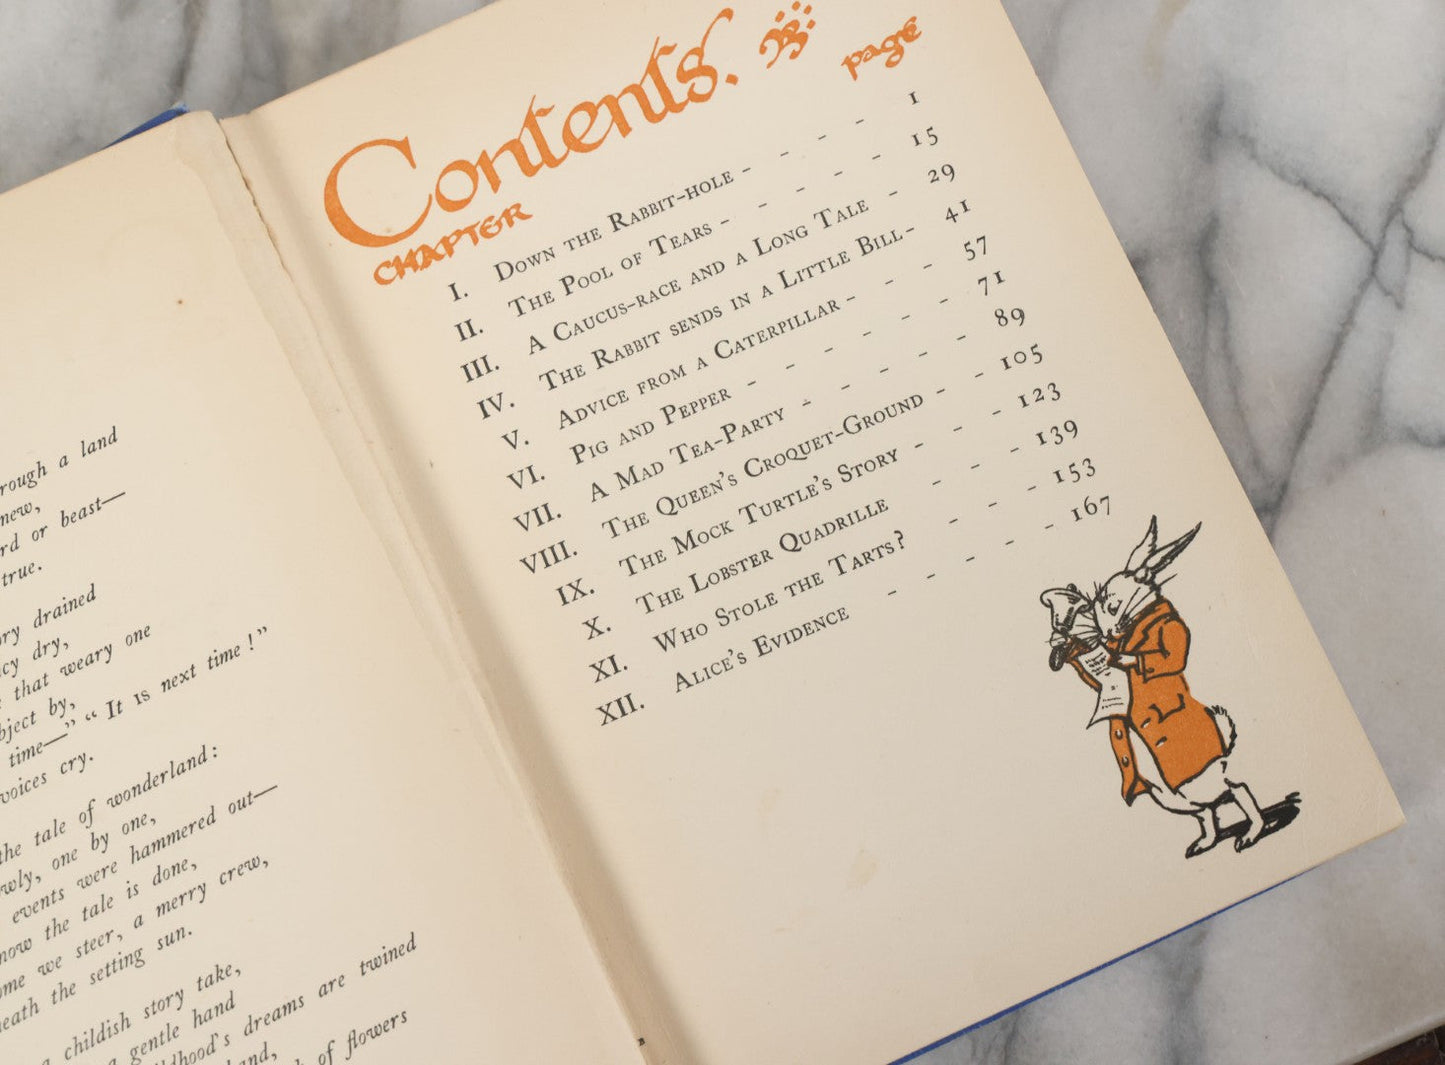 rough a land
new,
rd or beast—
true.
ry drained
cy dry,
that weary one
bject by,
time—” “ It is next time ! ”
voices cry.
the tale of wonderland :
wly, one by one,
events were hammered out—
now the tale is done,
ome we steer, a merry crew,
neath the setting sun.
a childish story take,
a gentle hand
ldhood's dreams are twined
and,
of flowers
Contents.
page
CHAPTER
I. Down the Rabbit-hole - - - - 1
II. The Pool of Tears - - - - - 15
III. A Caucus-race and a Long Tale - 29
IV. The Rabbit sends in a Little Bill- 41
V. Advice from a Caterpillar - - - 57
VI. Pig and Pepper - - - - - - 71
VII. A Mad Tea-Party - - - - - 89
VIII. The Queen's Croquet-Ground - - 105
IX. The Mock Turtle's Story - - - 123
X. The Lobster Quadrille - - - 139
XI. Who Stole the Tarts? - - - 153
XII. Alice's Evidence - - - - - 167